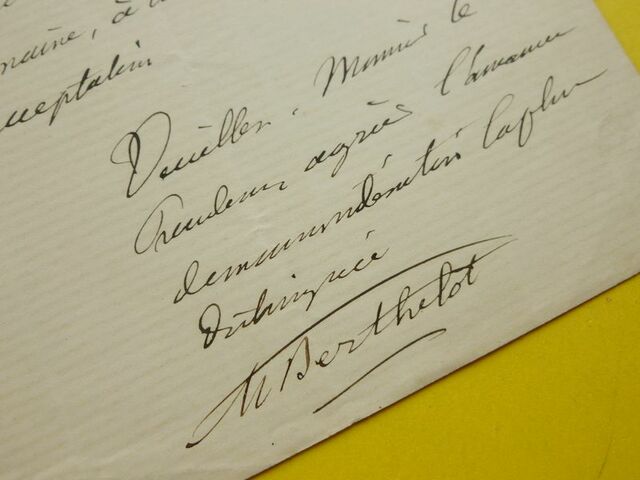 maine, à
acceptation
Veuillez, Monsieur le
Président agréer l'assurance
de ma considération la plus
distinguée
M Berthelot